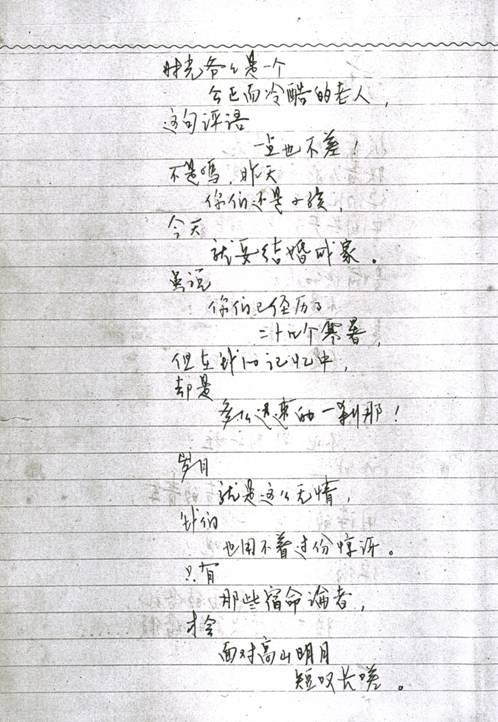 时光爷爷是一个
公正而冷酷的老人，
这句评语
一点也不差！
不是吗，昨天
你们还是小孩，
今天
就要结婚成家。
虽说
你们已经历了
二十几个寒暑，
但在我们记忆中，
却是
多么迅速的一刹那！
岁月
就是这么无情，
我们
也用不着过份惊讶。
只有
那些宿命论者，
才会
面对高山明月
短叹长嗟。